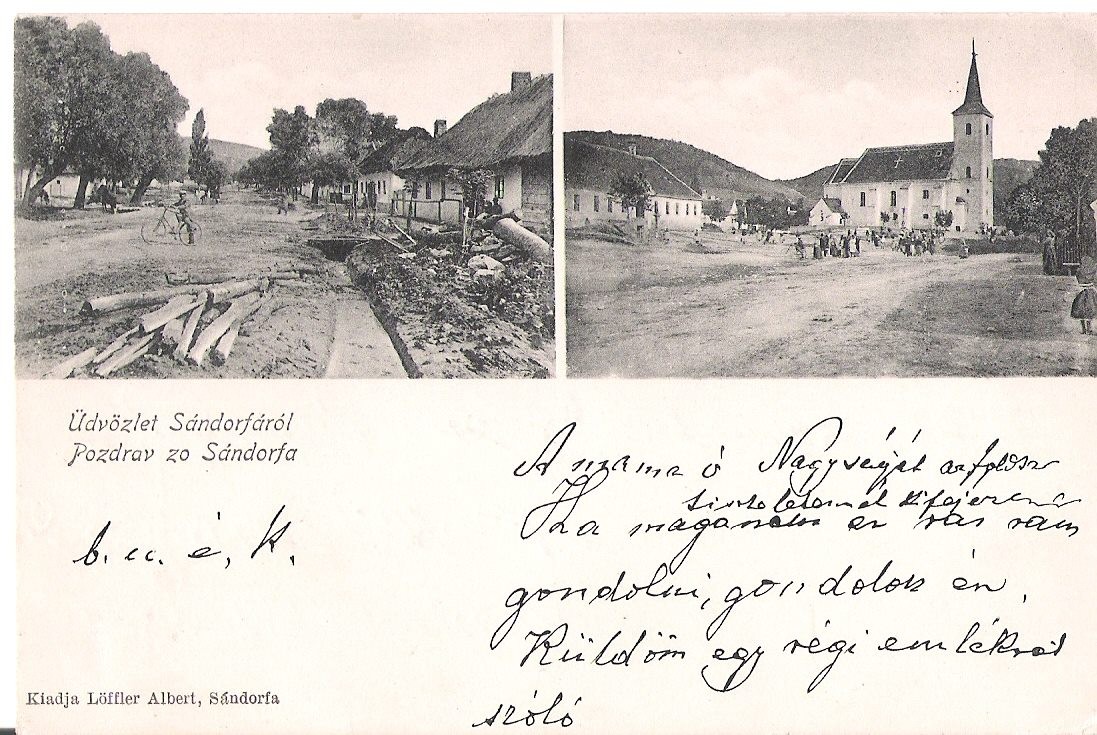 Üdvözlet Sándorfáról
Pozdrav zo Sándorfa
b. u. é. k.
A mama ő Nagyságát
kifejezem
Ha magának er ram
gondolni, gondolok én.
Küldöm egy régi emlékről
szóló
Kiadja Löffler Albert, Sándorfa